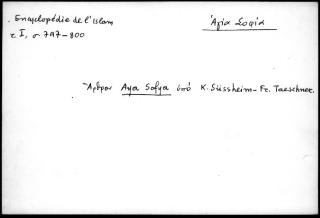 Encyclopédie de l'Islam
Ἁγία Σοφία
τ. I, σ. 797-800
Ἄρθρον Aya Sofya ὑπό K. Süssheim - Fr. Taeschner.